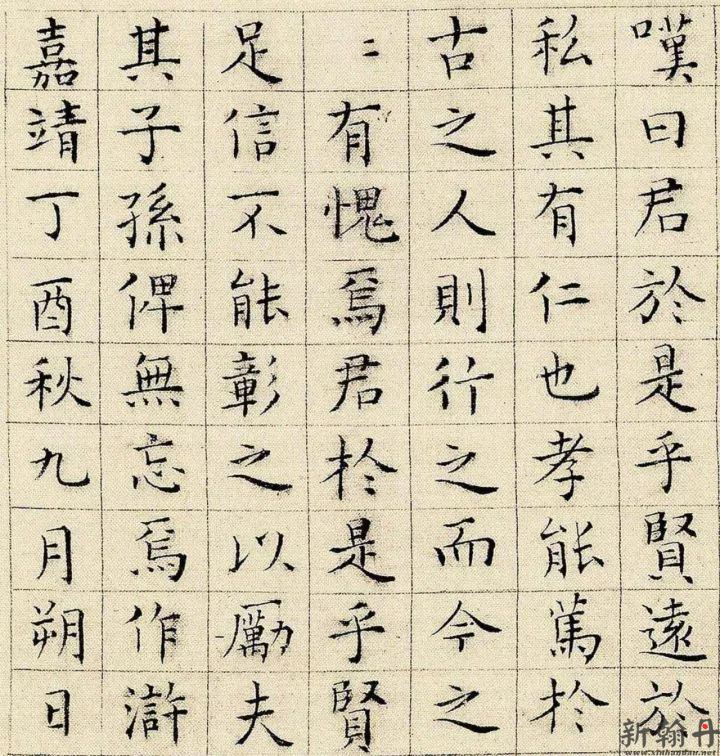 嘆曰君於是乎賢遠於
私其有仁也孝能篤扵
古之人則行之而今之
〻有愧焉君扵是乎賢
足信不能彰之以勵夫
其子孫俾無忘焉作滸
嘉靖丁酉秋九月朔日
新翰丹